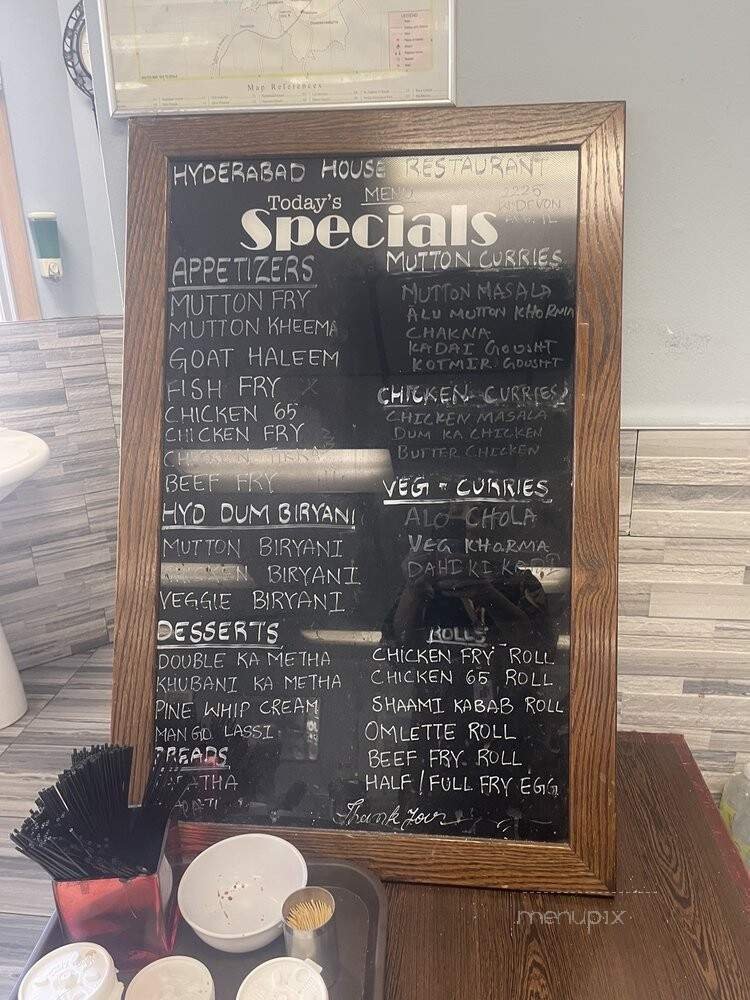 LEGEND
Map References
HYDERABAD HOUSE RESTAURANT
MENU
2225
W DEVON
Today's
Specials
APPETIZERS
MUTTON FRY
MUTTON KHEEMA
GOAT HALEEM
FISH FRY
CHICKEN 65
CHICKEN FRY
CHICKEN TIKKA
BEEF FRY
HYD DUM BIRYANI
MUTTON BIRYANI
CHICKEN BIRYANI
VEGGIE BIRYANI
DESSERTS
DOUBLE KA METHA
KHUBANI KA METHA
PINE WHIP CREAM
MANGO LASSI
BREADS
MUTTON CURRIES
MUTTON MASALA
ALU MUTTON KHORMA
CHAKNA
KADAI GOUSHT
KOTMIR GOUSHT
CHICKEN CURRIES
CHICKEN MASALA
DUM KA CHICKEN
BUTTER CHICKEN
VEG - CURRIES
ALO CHOLA
VEG KHORMA
DAHI KI KADI
ROLLS
CHICKEN FRY ROLL
CHICKEN 65 ROLL
SHAAMI KABAB ROLL
OMLETTE ROLL
BEEF FRY ROLL
HALF / FULL FRY EGG
Thank You
menupix